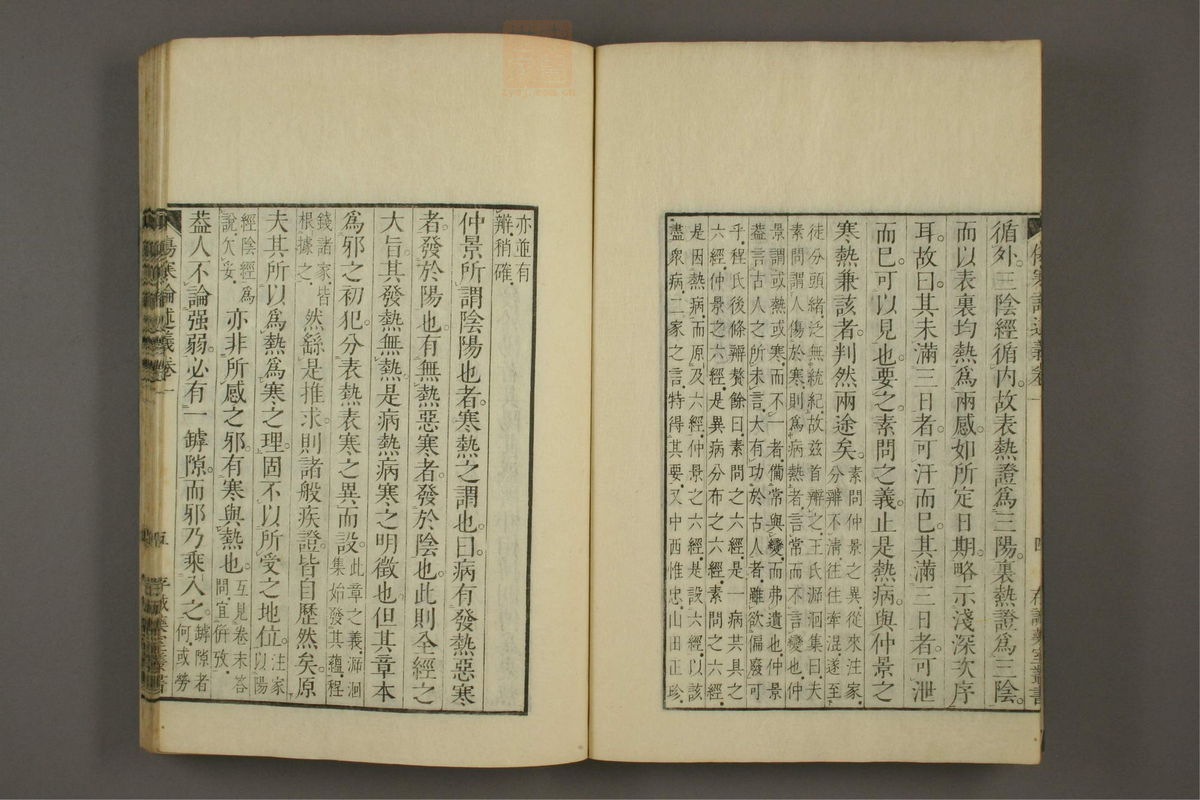 循外三陰經循内故表熱證爲三陽裏熱證爲三陰
而以表裏均熱爲兩感如所定日期略示淺深次序
耳故曰其未滿三日者可汗而已其滿三日者可泄
而已可以見也要之素問之義止是熱病與仲景之
寒熱兼該者判然兩途矣
素問仲景之異從來注家
分辨不清往往牽混遂至
徒分頭緒泛無統紀故兹首辯之王氏溯洄集曰夫
素問謂人傷於寒則爲病熱者言常而不言變也仲
景謂或熱或寒而不一者備常與變而弗遺也仲景
蓋言古人之所未言大有功於古人者雖欲偏廢可
乎程氏後條辨贅餘曰素問之六經是一病共具之
六經仲景之六經是異病分布之六經素問之六經
是因熱病而原及六經仲景之六經是設六經以該
盡衆病二家之言特得其要又中西惟忠山田正珍
亦並有
辨稍確
仲景所謂陰陽也者寒熱之謂也曰病有發熱惡寒
者發於陽也有無熱惡寒者發於陰也此則全經之
大旨其發熱無熱是病熱病寒之明徵也但其章本
爲邪之初犯分表熱表寒之異而設
此章之義溯洄
集始發其蘊程
錢諸家皆
根據之
然繇是推求則諸般疾證皆自歷然矣原
夫其所以爲熱爲寒之理固不以所受之地位
注家
以陽
經陰經爲
說欠妥
亦非所感之邪有寒與熱也
互見卷末答
問宜併攷
蓋人不論强弱必有一罅隙而邪乃乘入之
罅隙者
何或勞
傷寒論述義卷一
五